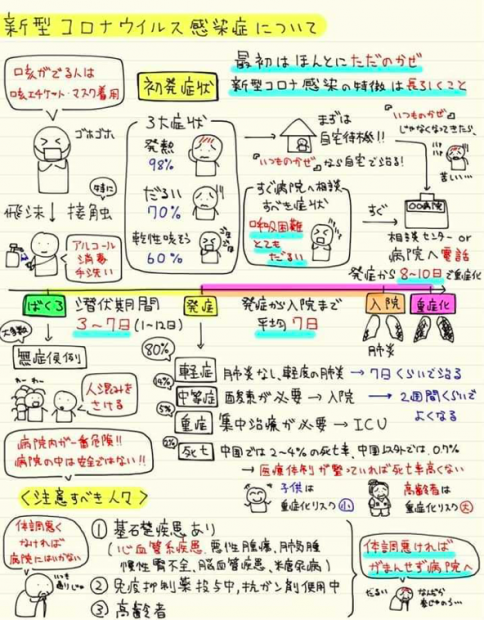 新型コロナウイルス感染症について
最初はほんとにただのかぜ
新型コロナ感染の特徴は長引くこと
咳がでる人は
咳エチケット・マスク着用
ゴホゴホ
飛沫
特に
接触
アルコール
消毒
手洗い
初発症状
3大症状
発熱
98%
だるい
70%
乾性咳そう
60%
まずは
自宅待機!!
"いつものかぜ"なら自宅で治る!
"いつものかぜ"
じゃなくなってきたら、
苦しい…
すぐ病院へ相談
すべき症状
呼吸困難
とても
だるい
すぐ
○○病院
相談センター or
病院へ電話
発症から8~10日で重症化
ばくろ
潜伏期間
3~7日(1~12日)
発症
発症から入院まで
平均7日
入院
重症化
肺炎
大多数
無症候例
わーわー
人混みを
さける
病院内が一番危険!!
病院の中は安全ではない!!
80%
軽症
肺炎なし、軽度の肺炎→7日くらいで治る
14%
中等症
酸素が必要→入院→2週間くらいで
よくなる
5%
重症
集中治療が必要→ICU
2%
死亡
中国では2~4%の死亡率、中国以外では0.7%
→医療体制が整っていれば死亡率高くない
子供は
重症化リスク小
高齢者は
重症化リスク大
<注意すべき人々>
体調悪く
なければ
病院にはいかない
いつも
通りじゃ
① 基礎疾患あり
(心血管系疾患、悪性腫瘍、肺気腫
慢性腎不全、脳血管疾患、糖尿病)
② 免疫抑制薬投与中、抗ガン剤使用中
③ 高齢者
体調悪ければ
がまんせず病院へ
だるい
なんだか
変じゃのう…